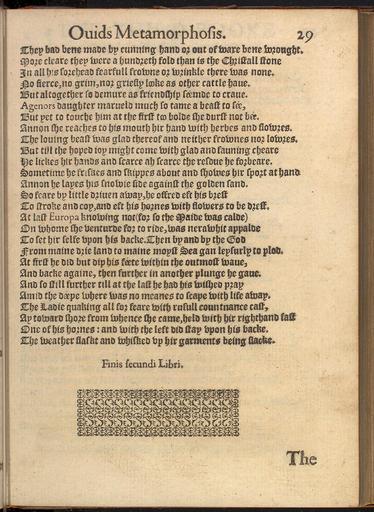 Ouids Metamorphosis. 29
They had bene made by cunning hand or out of waxe bene wrought.
More cleare they were a hundreth fold than is the Christall stone
In all his forehead fearfull frowne or wrinkle there was none.
No fierce, no grim, nor griesly looke as other cattle haue.
But altogether so demure as friendship seemde to craue.
Agenors daughter marueld much so tame a beast to see,
But yet to touche him at the first too bolde she durst not bée.
Annon she reaches to his mouth hir hand with herbes and flowres.
The louing beast was glad thereof and neither frownes nor lowres.
But till the hoped ioy might come with glad and fauning cheare
He lickes hir hands and scarce ah scarce the resdue he forbeare.
Sometime he friskes and skippes about and showes hir sport at hand
Annon he layes his snowie side against the golden sand.
So feare by little driuen away, he offred eft his brest
To stroke and coy, and eft his hornes with flowers to be drest.
At last Europa knowing not (for so the Maide was calde)
On whome she venturde for to ride, was nerawhit appalde
To set hir selfe vpon his backe. Then by and by the God
From maine drie land to maine moyst Sea gan leysurly to plod.
At first he did but dip his feete within the outmost waue,
And backe againe, then further in another plunge he gaue.
And so still further till at the last he had his wished pray
Amid the deepe where was no meanes to scape with life away.
The Ladie quaking all for feare with rufull countnance cast,
Ay toward shore from whence she came, held with hir righthand fast
One of his hornes: and with the left did stay vpon his backe.
The weather flaskt and whisked vp hir garments being slacke.
Finis secundi Libri.
The